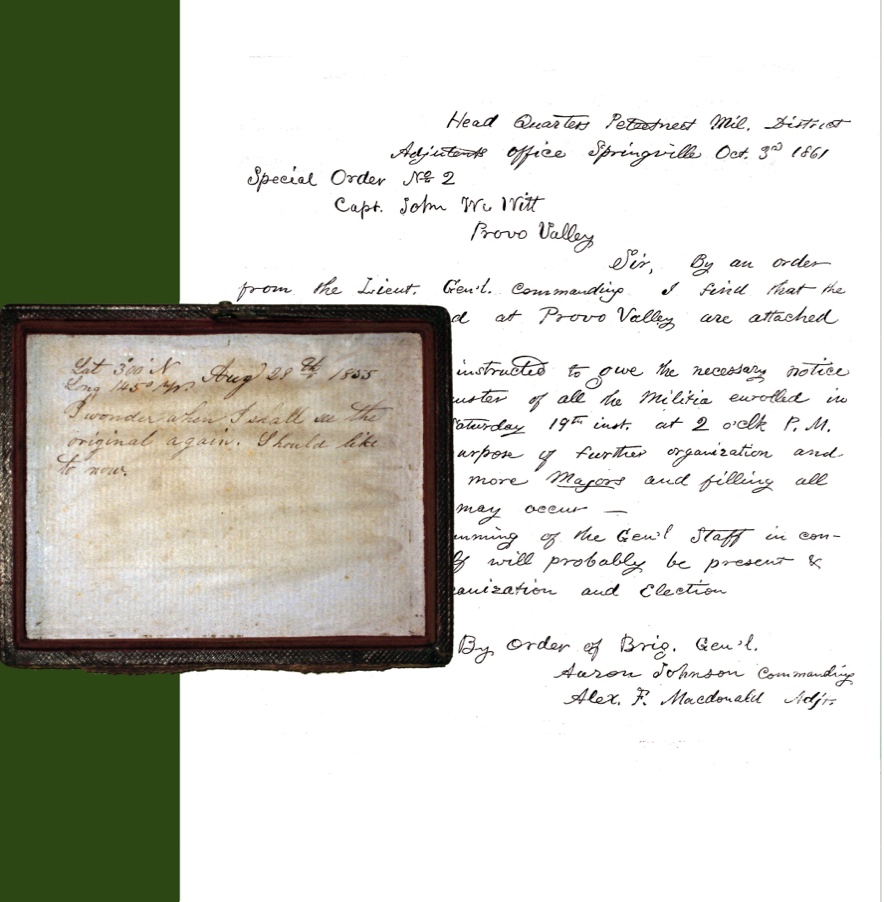 Head Quarters Peteetneet Mil. District
Adjutants office Springville Oct. 3rd 1861
Special Order No 2
Capt. John W. Witt
Provo Valley
Sir, By an order
from the Lieut. Gen'l. Commanding I find that the
d at Provo Valley are attached
instructed to give the necessary notice
uster of all the Militia enrolled in
aturday 19th inst. at 2 o'clk P. M.
urpose of further organization and
more Majors and filling all
may occur —
mming of the Gen'l Staff in con-
lf will probably be present &
ganization and Election
By Order of Brig. Gen'l.
Aaron Johnson Commanding
Alex. F. Macdonald Adjt.
Lat 3°00' N
Lng 145° Aug 28th 1855
I wonder when I shall see the
original again. Should like
to now.